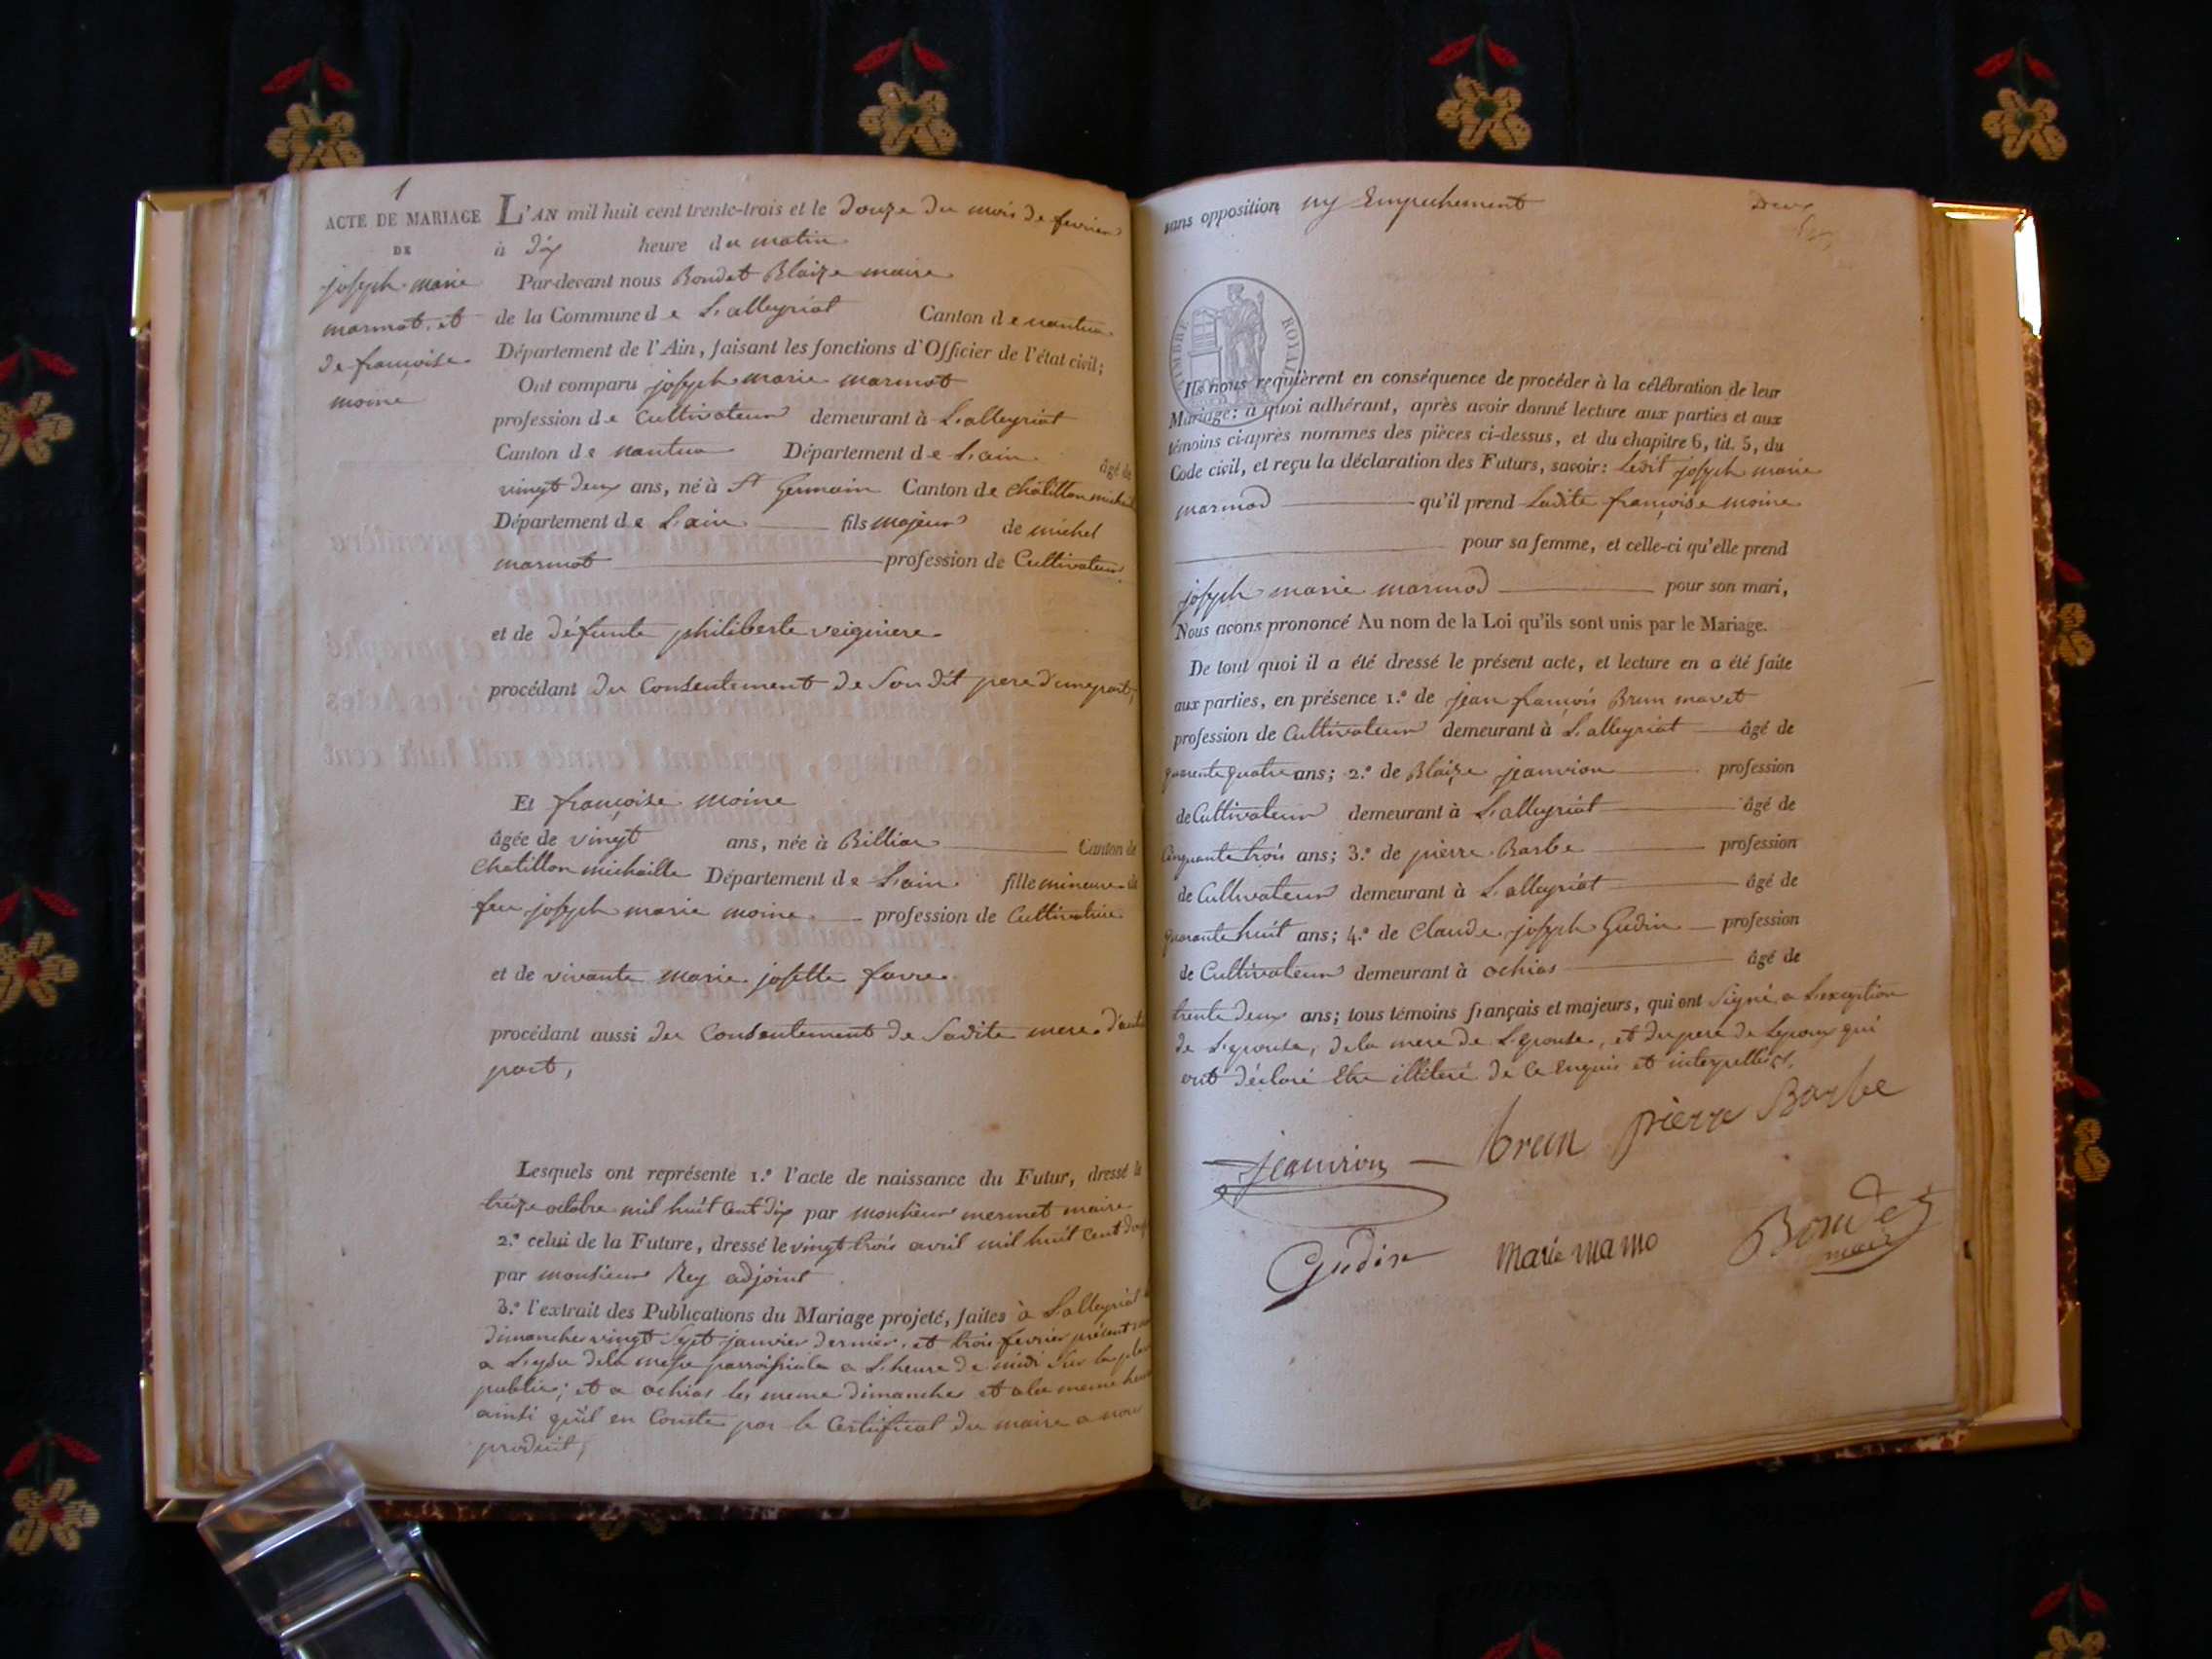 1
ACTE DE MARIAGE
DE
joseph marie
marmot, et
de françoise
moine
L'AN mil huit cent trente-trois et le douze du mois de fevrier
à dix heure du matin
Par-devant nous Bondet Blaize maire
de la Commune de L'alleyriat Canton de nantua
Département de l'Ain, faisant les fonctions d'Officier de l'état civil;
Ont comparu joseph marie marmot
profession de Cultivateur demeurant à L'alleyriat
Canton de nantua Département de L'ain âgé de
vingt deux ans, né à St Germain Canton de chatillon michaille
Département de L'ain fils majeur de michel
marmot profession de Cultivateur
et de défunte philiberte veigniere
procédant du Consentement de Son dit pere d'une part,
Et françoise moine
âgée de vingt ans, née à Billiac Canton de
Chatillon michaille Département de L'ain fille mineure de
feu joseph marie moine profession de Cultivatrice
et de vivante marie josette favre
procédant aussi du Consentement de Sadite mere d'autre
part,
Lesquels ont représenté 1.º l'acte de naissance du Futur, dressé le
treize octobre mil huit Cent dix par monsieur mermet maire
2.º celui de la Future, dressé le vingt trois avril mil huit Cent douze
par monsieur Rey adjoint
3.º l'extrait des Publications du Mariage projeté, faites à L'alleyriat
dimanche vingt Sept janvier dernier, et trois fevrier présent
a L'issue de la messe parroissiale a L'heure de midi Sur la place
public; et a ochias les meme dimanche et a la meme heure
ainsi qu'il en Conste par le Certificat du maire a nous
produit,
sans opposition ny Empechement
Deux
TIMBRE ROYAL
Ils nous requièrent en conséquence de procéder à la célébration de leur
Mariage; à quoi adhérant, après avoir donné lecture aux parties et aux
témoins ci-après nommés des pièces ci-dessus, et du chapitre 6, tit. 5, du
Code civil, et reçu la déclaration des Futurs, savoir: Ledit joseph marie
marmod qu'il prend Ladite françoise moine
pour sa femme, et celle-ci qu'elle prend
joseph marie marmod pour son mari,
Nous avons prononcé Au nom de la Loi qu'ils sont unis par le Mariage.
De tout quoi il a été dressé le présent acte, et lecture en a été faite
aux parties, en présence 1.º de jean françois Brun mavet
profession de Cultivateur demeurant à L'alleyriat âgé de
quarente quatre ans; 2.º de Blaize jeanvion profession
de Cultivateur demeurant à L'alleyriat âgé de
Cinquante trois ans; 3.º de pierre Barbe profession
de Cultivateur demeurant à L'alleyriat âgé de
quarante huit ans; 4.º de Claude joseph Gudin profession
de Cultivateur demeurant à ochias âgé de
trente deux ans; tous témoins français et majeurs, qui ont Signé, a L'exception
de L'epouse, de la mere de L'epouse, et du pere de Lepoux qui
ont déclaré Etre illiteré de Ce Enquis et interpellés,
jeanvion brun pierre Barbe
Gudin Marie mamo Bondet
maire